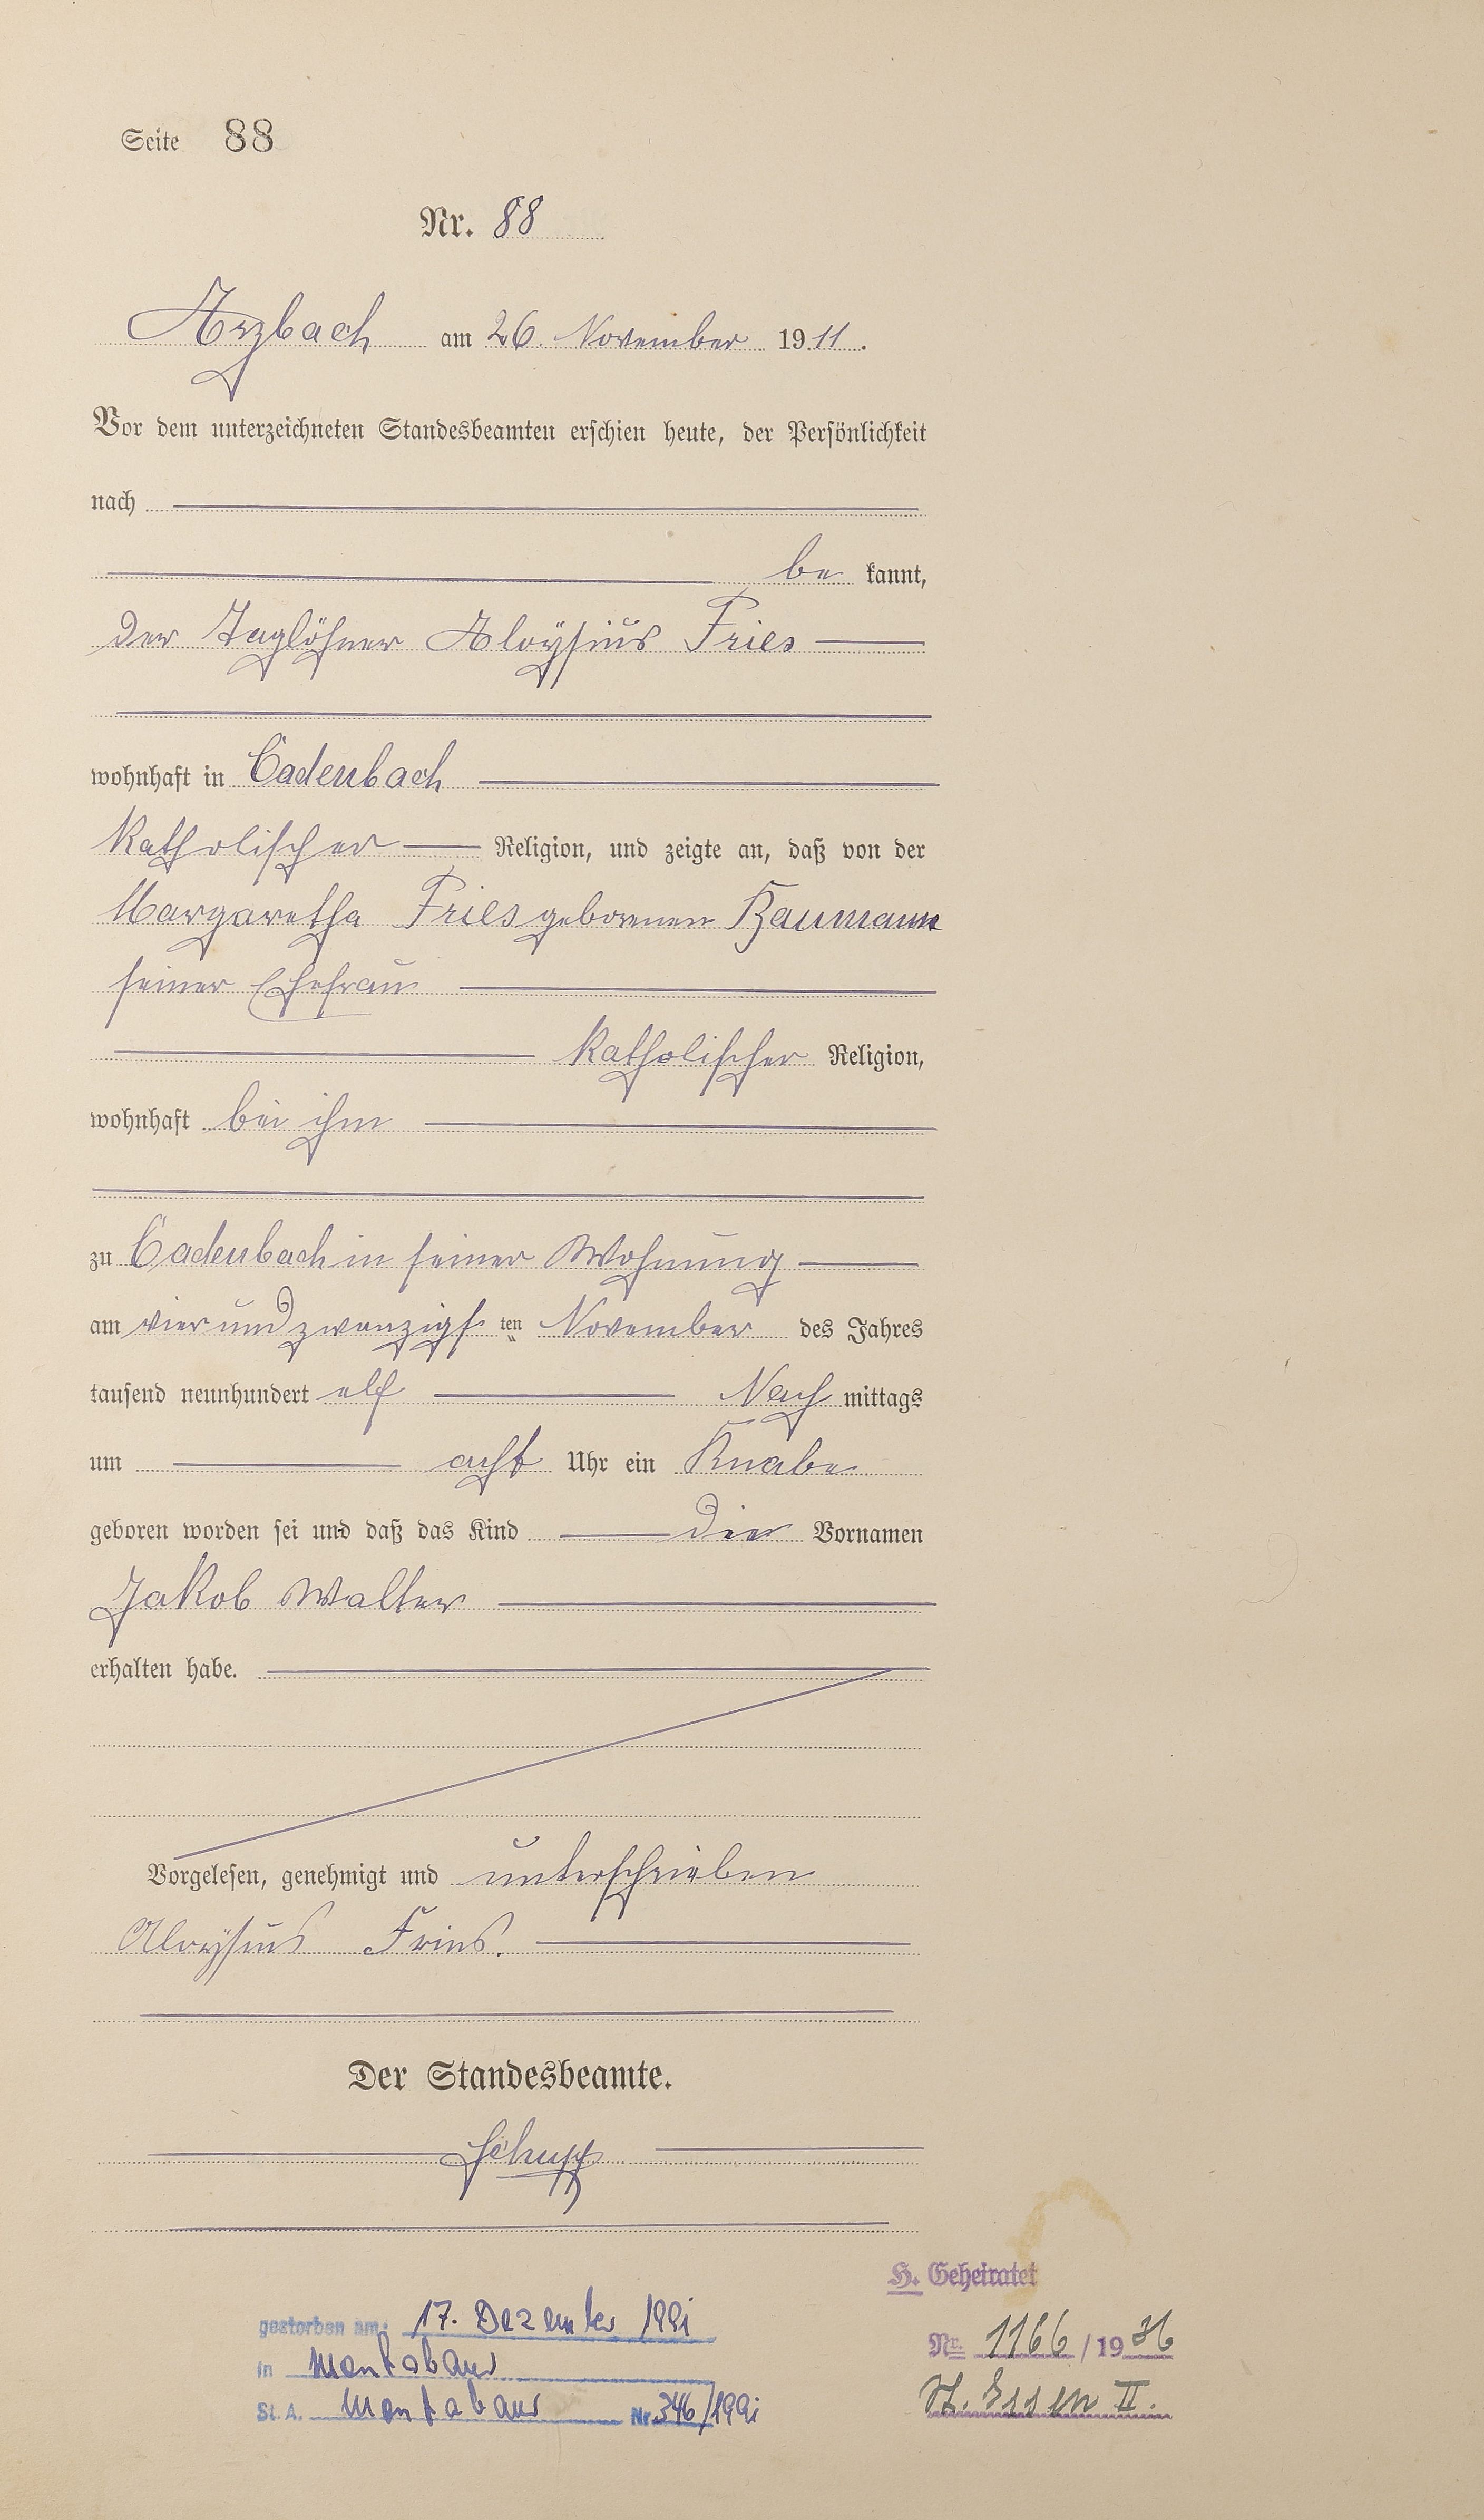 Seite 88
Nr. 88
Arzbach am 26. November 1911.
Vor dem unterzeichneten Standesbeamten erschien heute, der Persönlichkeit
nach
be kannt,
der Taglöhner Aloysius Fries
wohnhaft in Cadenbach
katholischer Religion, und zeigte an, daß von der
Margaretha Fries gebornen Baumann
seiner Ehefrau
katholischer Religion,
wohnhaft bei ihm
zu Cadenbach in seiner Wohnung
am vier und zwanzigs ten November des Jahres
tausend neunhundert elf Nach mittags
um acht Uhr ein Knabe
geboren worden sei und daß das Kind die Vornamen
Jakob Walter
erhalten habe.
Vorgelesen, genehmigt und unterschrieben
Aloysius Fries.
Der Standesbeamte.
Schupp
H. Geheiratet
gestorben am: 17. Dezember 1991
Nr. 1166/1936
in Montabaur
St. Essen II.
St. A. Montabaur Nr. 346/1991